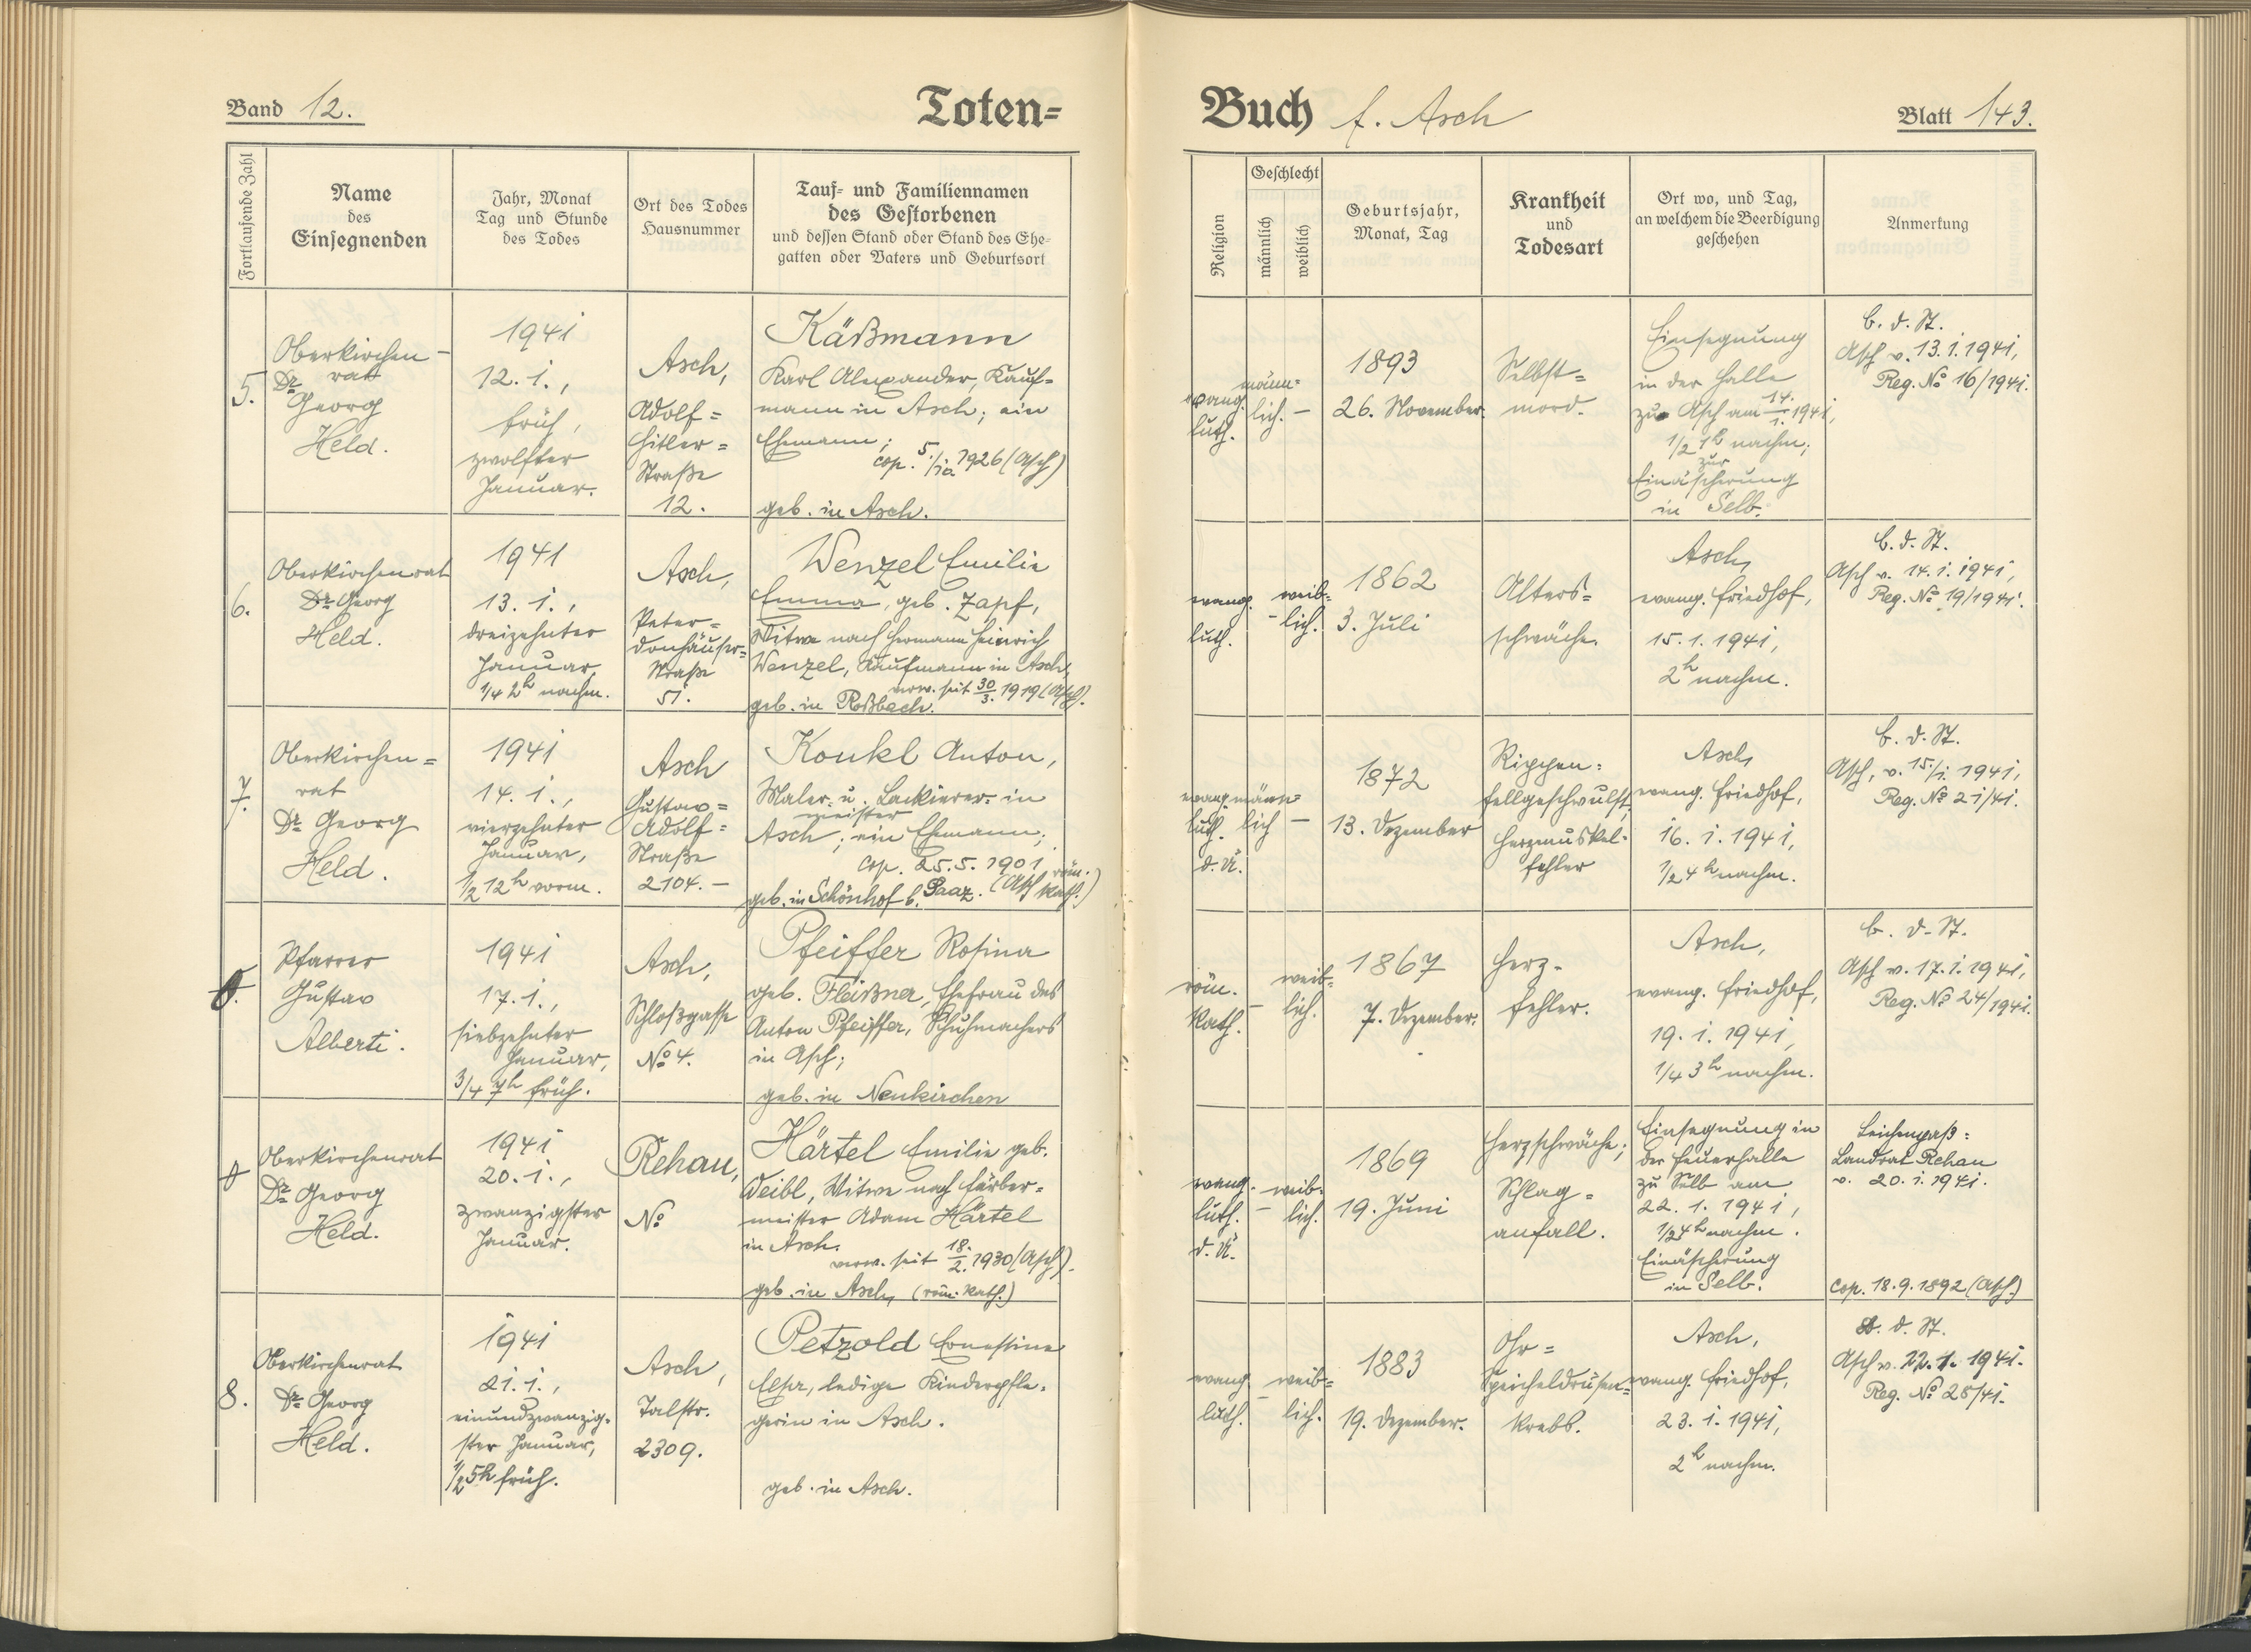 Band 12.
Toten=
Buch f. Asch
Blatt 143.
Fortlaufende Zahl
Name
des
Einsegnenden
Jahr, Monat
Tag und Stunde
des Todes
Ort des Todes
Hausnummer
Tauf- und Familiennamen
des Gestorbenen
und dessen Stand oder Stand des Ehe-
gatten oder Vaters und Geburtsort
Religion
Geschlecht
männlich
weiblich
Geburtsjahr,
Monat, Tag
Krankheit
und
Todesart
Ort wo, und Tag,
an welchem die Beerdigung
geschehen
Anmerkung
5.
Oberkirchen-
rat
Dr.
Georg
Held.
1941
12. 1.,
früh,
zwölfter
Januar.
Asch,
Adolf=
Hitler=
Straße
12.
Käßmann
Karl Alexander, Kauf=
mann in Asch; ein
Ehemann;
cop. 5./10 1926 (Asch)
geb. in Asch.
evang.
luth.
männ=
lich. –
1893
26. November.
Selbst=
mord.
Einsegnung
in der Halle
zu Asch am 14./1. 1941,
1/2 1h nachm;
zur
Einäscherung
in Selb.
b. d. St.
Asch v. 13. 1. 1941,
Reg. No 16/1941.
6.
Oberkirchenrat
Dr. Georg
Held.
1941
13. 1.,
dreizehnter
Januar,
1/4 2h nachm.
Asch,
Peter=
donhäuser=
Straße
51.
Wenzel Emilie
Emma, geb. Zapf,
Witwe nach Hermann Heinrich
Wenzel, Kaufmann in Asch,
verw. seit 30/3. 1919 (Asch).
geb. in Roßbach.
evang.
luth.
– weib=
lich.
1862
3. Juli
Alters=
schwäche.
Asch,
evang. Friedhof,
15. 1. 1941,
2h nachm.
b. d. St.
Asch v. 14. 1. 1941,
Reg. No 19/1941.
7.
Oberkirchen=
rat
Dr. Georg
Held.
1941
14. 1.,
vierzehnter
Januar,
1/2 12h vorm.
Asch
Gustav=
Adolf=
Straße
2104. –
Konkl Anton,
Maler= u. Lackierer= in
meister
Asch; ein Ehemann;
cop. 25. 5. 1901
(Asch röm. kath.)
geb. in Schönhof b. Saaz.
evang.
luth.
d. Ü.
männ
lich –
1872
13. Dezember
Rippen=
fellgeschwulst,
Herzmuskel=
fehler
Asch,
evang. Friedhof,
16. 1. 1941,
1/2 4h nachm.
b. d. St.
Asch, v. 15./1. 1941,
Reg. No 21/41.
Pfarrer
Gustav
Alberti.
1941
17. 1.,
siebzehnter
Januar,
3/4 7h früh.
Asch,
Schloßgasse
No 4.
Pfeiffer Rosina
geb. Fleißner, Ehefrau des
Anton Pfeiffer, Schuhmachers
in Asch;
geb. in Neukirchen
röm.
kath.
– weib=
lich.
1867
7. Dezember.
Herz-
fehler.
Asch,
evang. Friedhof,
19. 1. 1941,
1/4 3h nachm.
b. d. St.
Asch v. 17. 1. 1941,
Reg. No 24/1941.
Oberkirchenrat
Dr. Georg
Held.
1941
20. 1.,
zwanzigster
Januar.
Rehau,
No
Härtel Emilie geb.
Weibl, Witwe nach Färber=
meister Adam Härtel
in Asch.
verw. seit 18./2. 1930 (Asch).
geb. in Asch, (röm. kath.)
evang.
luth.
d. Ü.
– weib=
lich.
1869
19. Juni
Herzschwäche;
Schlag=
anfall.
Einsegnung in
der Feuerhalle
zu Selb am
22. 1. 1941,
1/2 4h nachm.
Einäscherung
in Selb.
Leichenpaß:
Landrat Rehau
v. 20. 1. 1941.
cop. 18. 9. 1892 (Asch.)
8.
Oberkirchenrat
Dr. Georg
Held.
1941
21. 1.,
einundzwanzig=
ster Januar,
1/2 5h früh.
Asch,
Talstr.
2309.
Petzold Ernestine
Elsa, ledige Kinderpfle=
gerin in Asch.
geb. in Asch.
evang.
luth.
– weib=
lich.
1883
19. Dezember.
Ohr=
speicheldrüsen=
krebs.
Asch,
evang. Friedhof,
23. 1. 1941,
2h nachm.
b. d. St.
Asch v. 22. 1. 1941.
Reg. No 28/41.